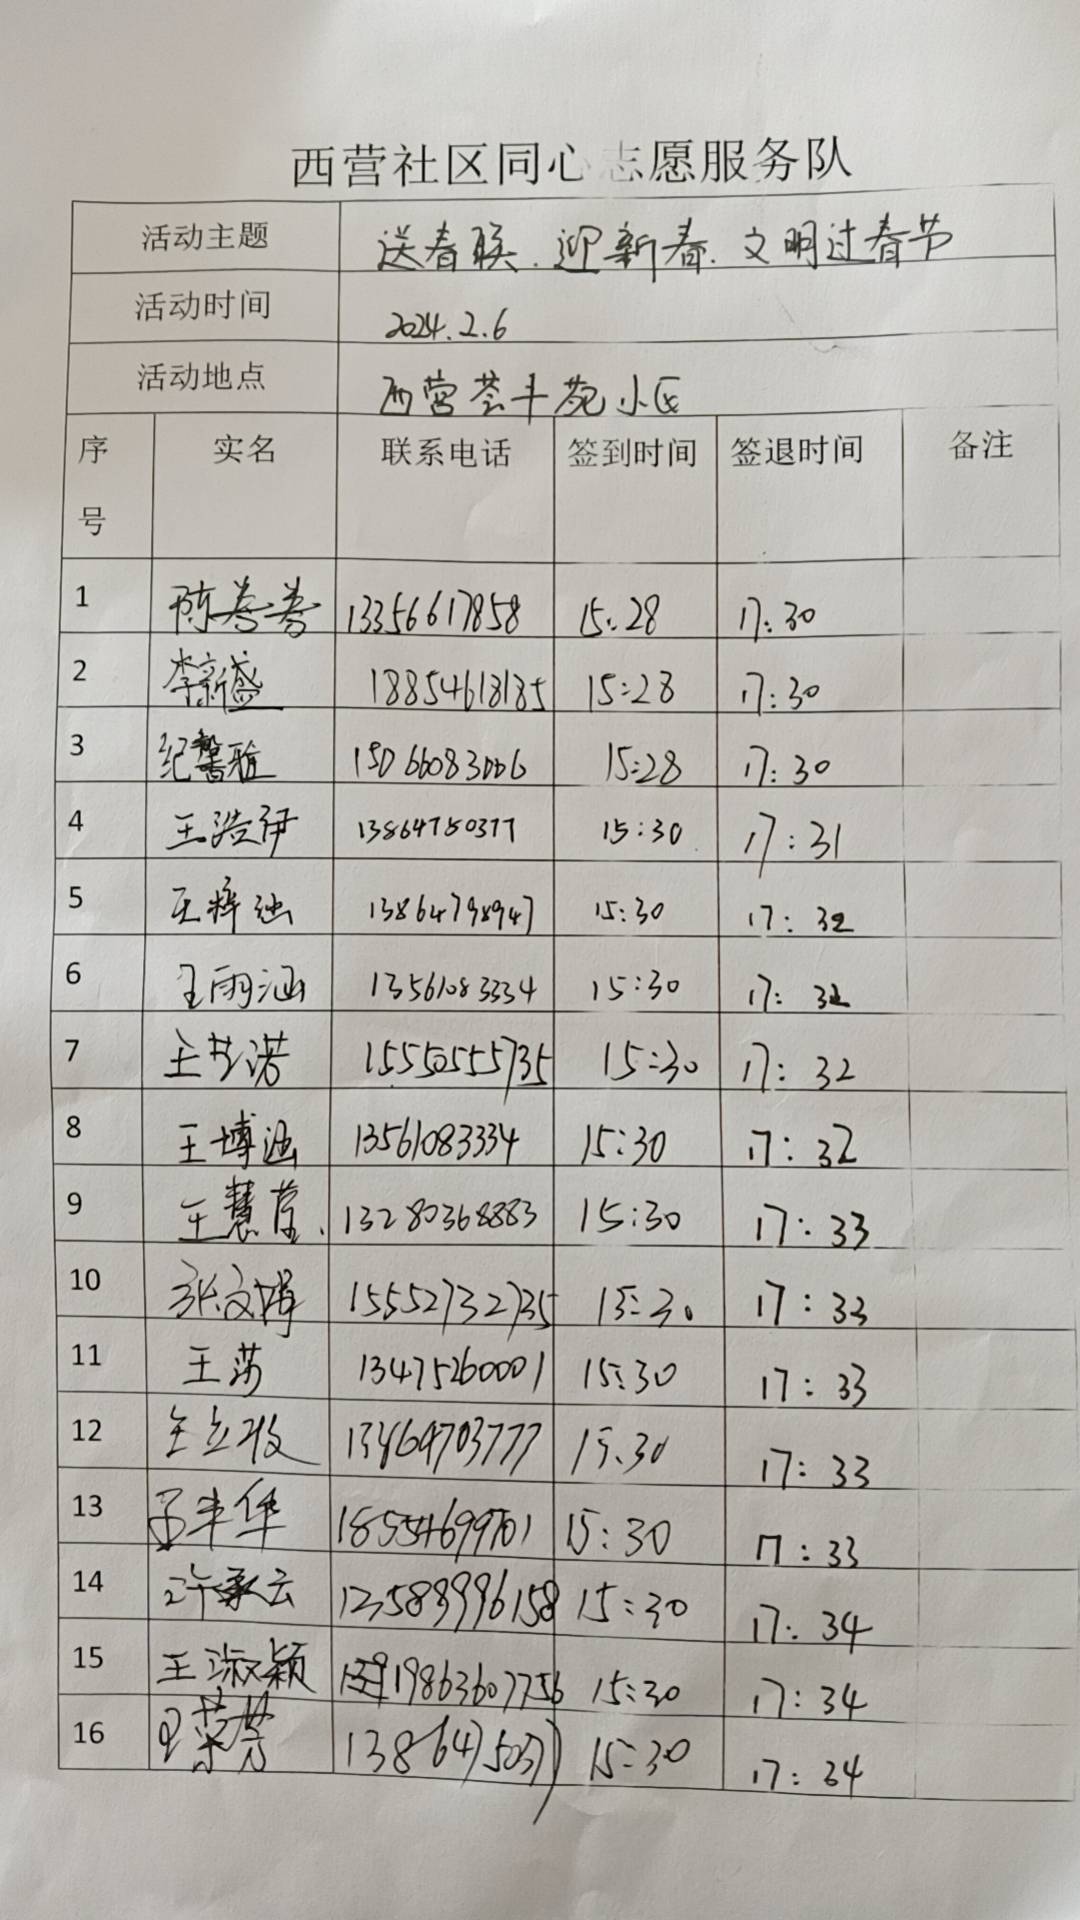 西营社区同心志愿服务队
活动主题 送春联.迎新春.文明过春节
活动时间 2024.2.6
活动地点 西营荟丰苑小区
序号 实名 联系电话 签到时间 签退时间 备注
1 陈善善 13356617858 15:28 17:30
2 李新盛 18854618185 15:28 17:30
3 纪馨雅 15066083006 15:28 17:30
4 王浩伊 13864750377 15:30 17:31
5 王梓涵 13864798947 15:30 17:32
6 王雨涵 13561083334 15:30 17:32
7 王艺诺 15550555735 15:30 17:32
8 王博涵 13561083334 15:30 17:32
9 王慧莹 13280368883 15:30 17:33
10 张文娟 15552732735 15:30 17:33
11 王莎 13475260001 15:30 17:33
12 王立收 13464703777 15:30 17:33
13 丰华 15:30 17:33
14 许承云 15:30 17:34
15 王淑颖 19863607756 15:30 17:34
16 王荣芳 13864750377 15:30 17:34